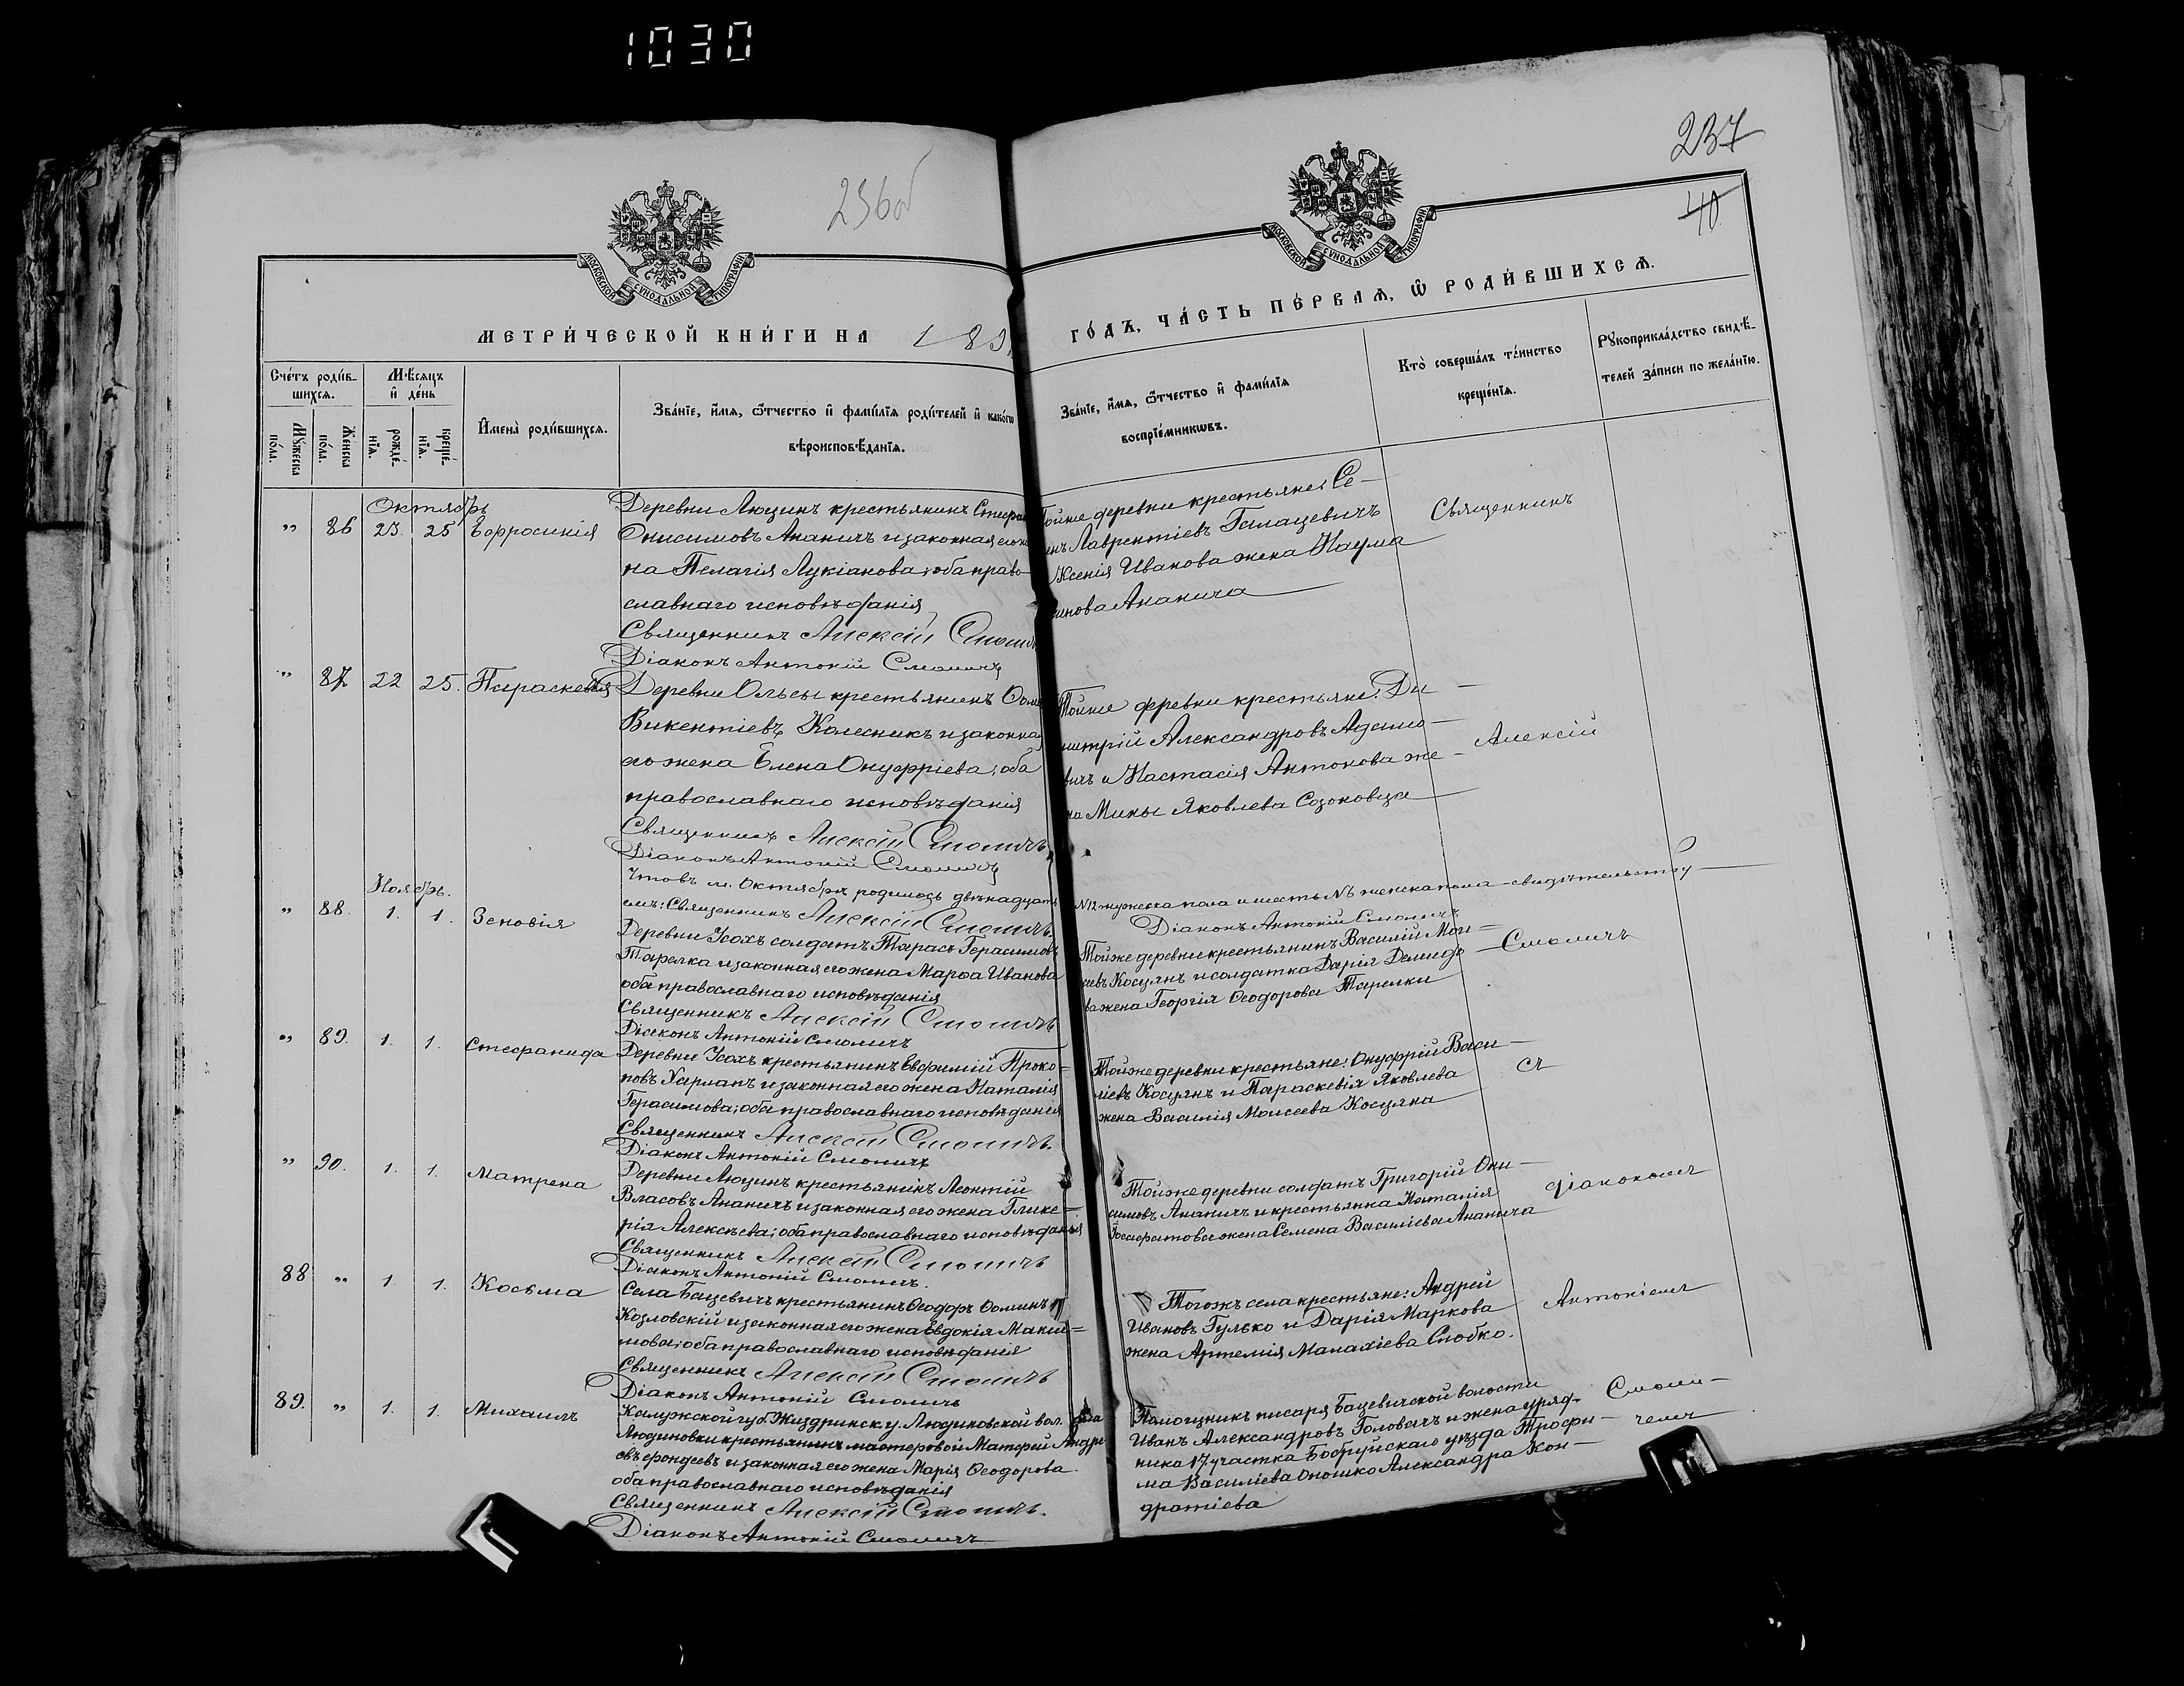 1030
236об
237
40
МОСКОВСКОЙ СѴНОДАЛЬНОЙ ТИПОГРАФІИ
МОСКОВСКОЙ СѴНОДАЛЬНОЙ ТИПОГРАФІИ
МЕТРИ́ЧЕСКОЙ КНИ́ГИ НА 189
ГО́ДЪ, ЧА́СТЬ ПЕ́РВАѦ, Ѡ҆ РОДИ́ВШИХСѦ.
Сче́тъ роди́в-
шихсѧ.
Мѣ́сѧцъ
и҆ де́нь
Мꙋ́жеска
по́ла.
Же́нска
по́ла.
рожде́-
нїѧ.
креще́-
нїѧ.
И҆мена̀ роди́вшихсѧ.
Зва́нїе, и҆́мѧ, ѻ҆́тчество и҆ фами́лїѧ роди́телей и҆ како́гѡ
вѣроисповѣ́данїѧ.
Зва́нїе, и҆́мѧ, ѻ҆́тчество и҆ фами́лїѧ
воспрїе́мникѡвъ.
Кто̀ соверша́лъ та́инство
креще́нїѧ.
Рꙋкоприкла́дство свидѣ́-
телей за́писи по жела́нїю.
Октябрь
" 86 23. 25 Ефросинія
Деревни Люцинъ крестьянинъ Стефа
Онисимовъ Ананичъ и законная его же
на Пелагія Лукіанова, оба право-
славнаго исповѣданія
Священникъ Алексій Смоли
Діаконъ Антоній Смоличъ
Тойже деревни крестьяне: Се-
нъ Лаврентіевъ Галацевичъ
Ксенія Иванова жена Наума
нова Ананича
Священникъ
" 87 22 25. Параскевія
Деревни Ольсы крестьянинъ Ѳома
Викентіевъ Колесникъ и законная
его жена Елена Онуфріева; оба
православнаго исповѣданія
Священникъ Алексій Смоличъ
Діаконъ Антоній Смоличъ
Тойже деревни крестьяне: Ди-
митрій Александровъ Адамо-
вичъ и Настасія Антонова же-
на Мины Яковлева Созоновца
Алексій
Что въ м. Октябрѣ родилось двѣнадцать №12 мужеска пола и шесть №6 женска пола - свидѣтельству-
емъ: Священникъ Алексій Смоличъ.
Діаконъ Антоній Смоличъ
Ноябрь.
" 88. 1. 1. Зеновія
Деревни Усохъ солдатъ Тарасъ Герасимовъ
Тарелка и законная его жена Марѳа Иванова
оба православнаго исповѣданія
Священникъ Алексій Смоличъ
Діаконъ Антоній Смоличъ
Тойже деревни крестьянинъ Василій Мои-
сеевъ Косцянъ и солдатка Дарія Демидо-
ва жена Георгія Ѳеодорова Тарелки
Смоличъ
" 89. 1. 1. Стефанида
Деревни Усохъ крестьянинъ Евфимій Проко-
повъ Харланъ и законная его жена Наталія
Герасимова; оба православнаго исповѣданія
Священникъ Алексій Смоличъ.
Діаконъ Антоній Смоличъ
Тойже деревни крестьяне: Онуфрій Васи-
ліевъ Косцянъ и Параскевія Яковлева
жена Василія Моисеева Косцяна
съ
" 90. 1. 1. Матрена
Деревни Люцинъ крестьянинъ Леонтій
Власовъ Ананичъ и законная его жена Глике-
рія Алексѣева; оба православнаго исповѣданія
Священникъ Алексій Смоличъ
Діаконъ Антоній Смоличъ.
Тойже деревни солдатъ Григорій Они-
симовъ Ананичъ и крестьянка Наталія
Іосафатова жена Семена Василіева Ананича
діакономъ
88 " 1. 1. Косьма
Села Бацевичъ крестьянинъ Ѳеодоръ Ѳоминъ
Козловскій и законная его жена Евдокія Макси-
мова; оба православнаго исповѣданія
Священникъ Алексій Смоличъ
Діаконъ Антоній Смоличъ
Тогожъ села крестьяне: Андрей
Ивановъ Гулько и Дарія Маркова
жена Артемія Малахіева Слобко.
Антоніемъ
89. " 1. 1. Михаилъ
Калужской губ. Жиздринск. у. Людиновской вол. села
Людиновки крестьянинъ мастеровой Матѳей Андре
евъ и законная его жена Марія Ѳеодорова.
оба православнаго исповѣданія
Священникъ Алексій Смоличъ.
Діаконъ Антоній Смоличъ
Помощникъ писаря Бацевичской волости
Иванъ Александровъ Головачъ и жена уряд-
ника 17 участка Бобруйскаго уѣзда Трофи-
ма Василіева Оношко Александра Кон-
дратіева
Смоли-
чемъ